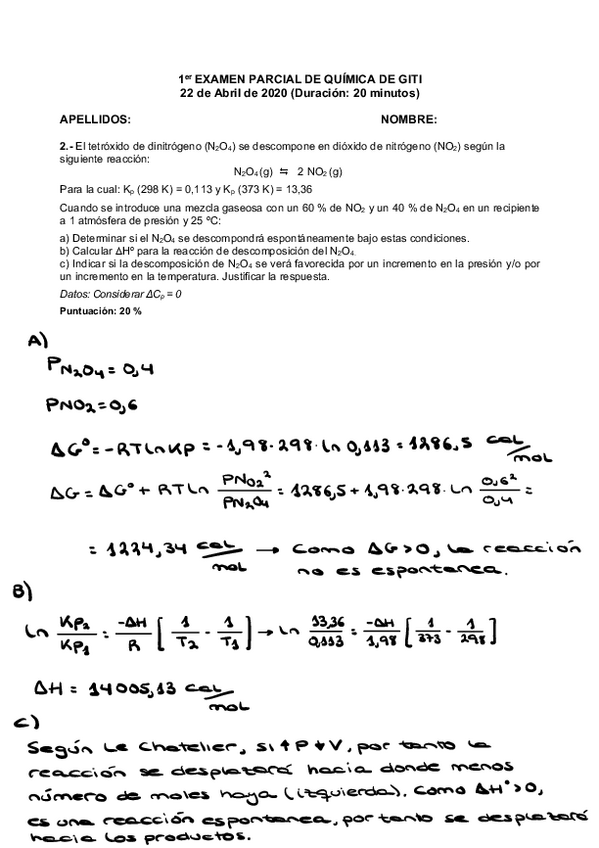 1er EXAMEN PARCIAL DE QUÍMICA DE GITI
22 de Abril de 2020 (Duración: 20 minutos)
APELLIDOS: NOMBRE:
2.- El tetróxido de dinitrógeno (N₂O₄) se descompone en dióxido de nitrógeno (NO₂) según la
siguiente reacción:
N₂O₄ (g) ⇆ 2 NO₂ (g)
Para la cual: Kₚ (298 K) = 0,113 y Kₚ (373 K) = 13,36
Cuando se introduce una mezcla gaseosa con un 60 % de NO₂ y un 40 % de N₂O₄ en un recipiente
a 1 atmósfera de presión y 25 ºC:
a) Determinar si el N₂O₄ se descompondrá espontáneamente bajo estas condiciones.
b) Calcular ΔHº para la reacción de descomposición del N₂O₄.
c) Indicar si la descomposición de N₂O₄ se verá favorecida por un incremento en la presión y/o por
un incremento en la temperatura. Justificar la respuesta.
Datos: Considerar ΔCₚ = 0
Puntuación: 20 %
A)
PN₂O₄ = 0,4
PNO₂ = 0,6
ΔG° = -RTLnKP = -1,98·298·Ln 0,113 = 1286,5 cal/mol
ΔG = ΔG° + RTLn PNO₂²/PN₂O₄ = 1286,5 + 1,98·298·Ln 0,6²/0,4 =
= 1224,34 cal/mol → Como ΔG>0, la reacción
no es espontanea.
B)
Ln Kp₂/Kp₁ = -ΔH/R [1/T₂ - 1/T₁] → Ln 13,36/0,113 = -ΔH/1,98 [1/373 - 1/298]
ΔH = 14005,13 cal/mol
C)
Según Le Chatelier, si ↑P ↓V, por tanto la
reacción se desplazará hacia donde menos
número de moles haya (izquierda). Como ΔH°>0,
es una reacción espontanea, por tanto se desplazará
hacia los productos.